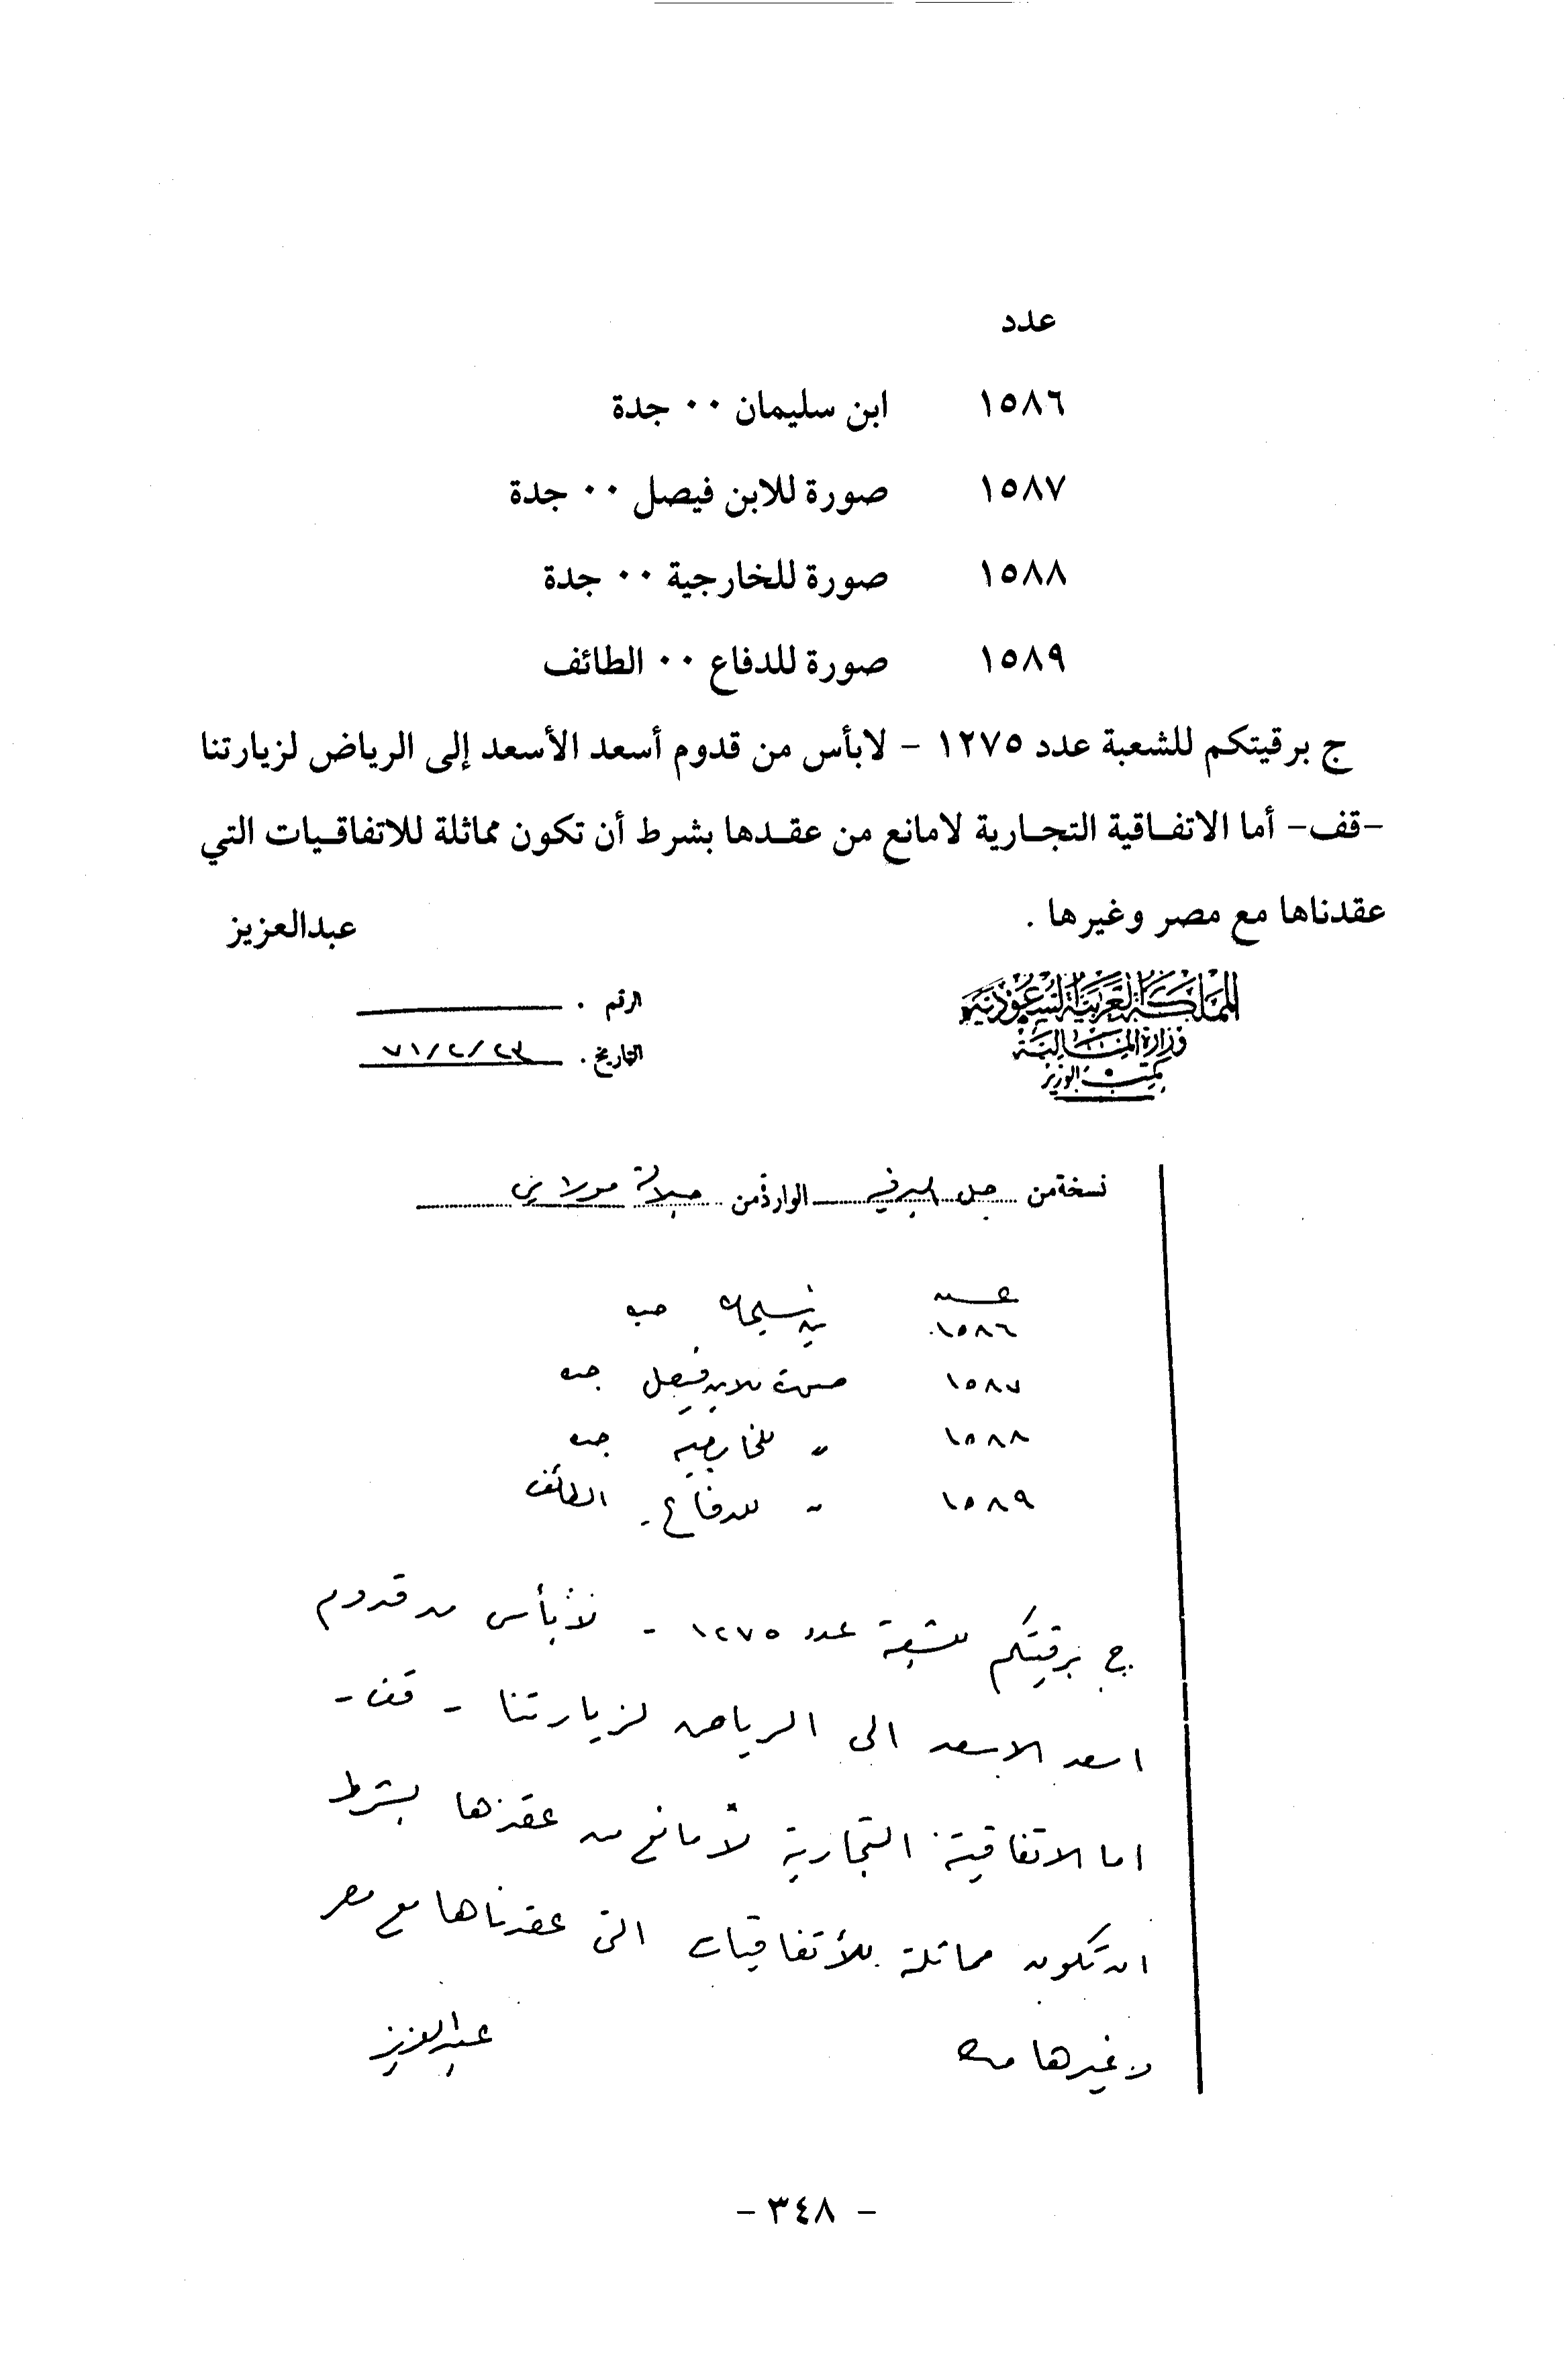 عدد
١٥٨٦ ابن سليمان ٠٠ جدة
١٥٨٧ صورة للابن فيصل ٠٠ جدة
١٥٨٨ صورة للخارجية ٠٠ جدة
١٥٨٩ صورة للدفاع ٠٠ الطائف
ج برقيتكم للشعبة عدد ١٢٧٥ - لابأس من قدوم أسعد الأسعد إلى الرياض لزيارتنا
-قف- أما الاتفاقية التجارية لامانع من عقدها بشرط أن تكون مماثلة للاتفاقيات التي
عقدناها مع مصر وغيرها .
عبدالعزيز
المملكة العربية السعودية
وزارة المالية
مكتب الوزير
الرقم .
التاريخ . ٧١/٢/٢٣
نسخة من الواردة من جلالة مولاي
عدد
١٥٨٦ بن سليمان جده
١٥٨٧ صورة للابن فيصل جده
١٥٨٨ " للخارجيه جده
١٥٨٩ " للدفاع - الطائف
ج برقيتكم للشعبة عدد ١٢٧٥ - لابأس من قدوم
اسعد الاسعد الى الرياض لزيارتنا - قف -
اما الاتفاقية التجارية لامانع من عقدها بشرط
ان تكون مماثلة للأتفاقيات التي عقدناها مع مصر
وغيرها
عبدالعزيز
- ٣٤٨ -